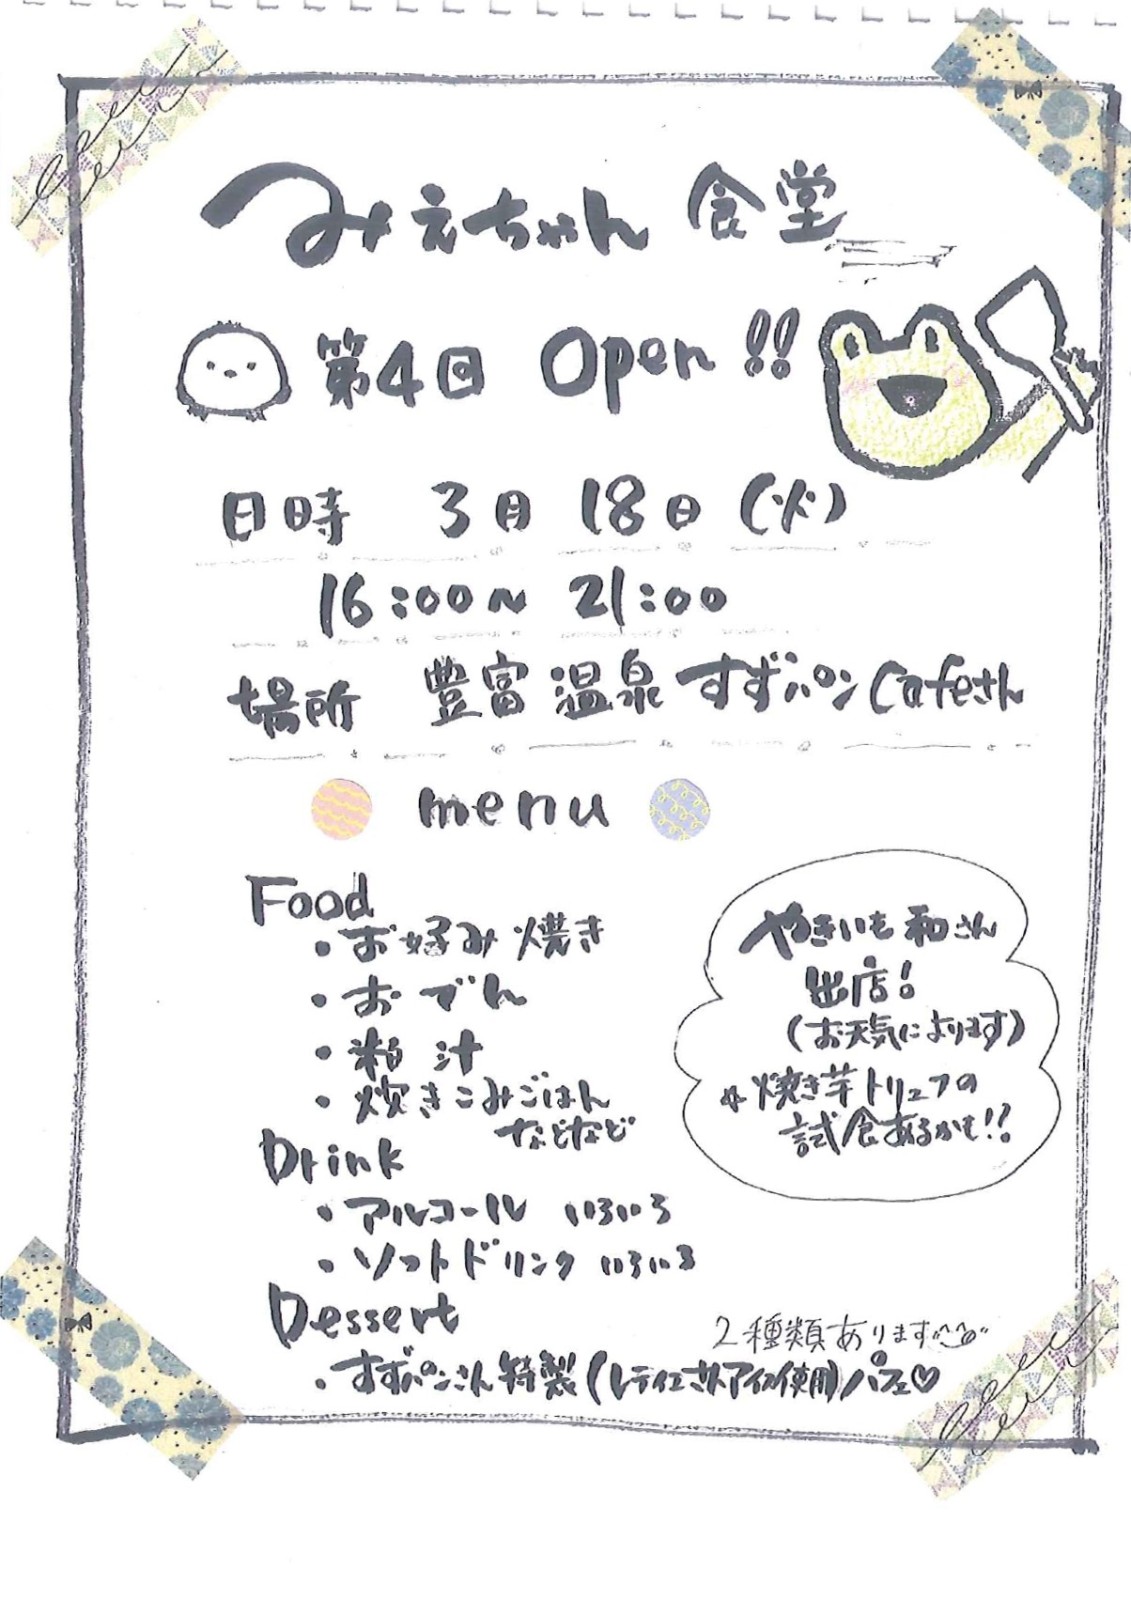 みえちゃん食堂
第4回 Open!!
日時 3月18日(火)
16:00~21:00
場所 豊富温泉 すずパンCafeさん
menu
Food
・お好み焼き
・おでん
・粕汁
・炊きこみごはん
などなど
Drink
・アルコール いろいろ
・ソフトドリンク いろいろ
Dessert
2種類あります
・すずパンさん特製(レティエさんアイス使用)パフェ♡
やきいも和さん
出店!
(お天気によります)
☆焼き芋トリュフの
試食あるかも!!